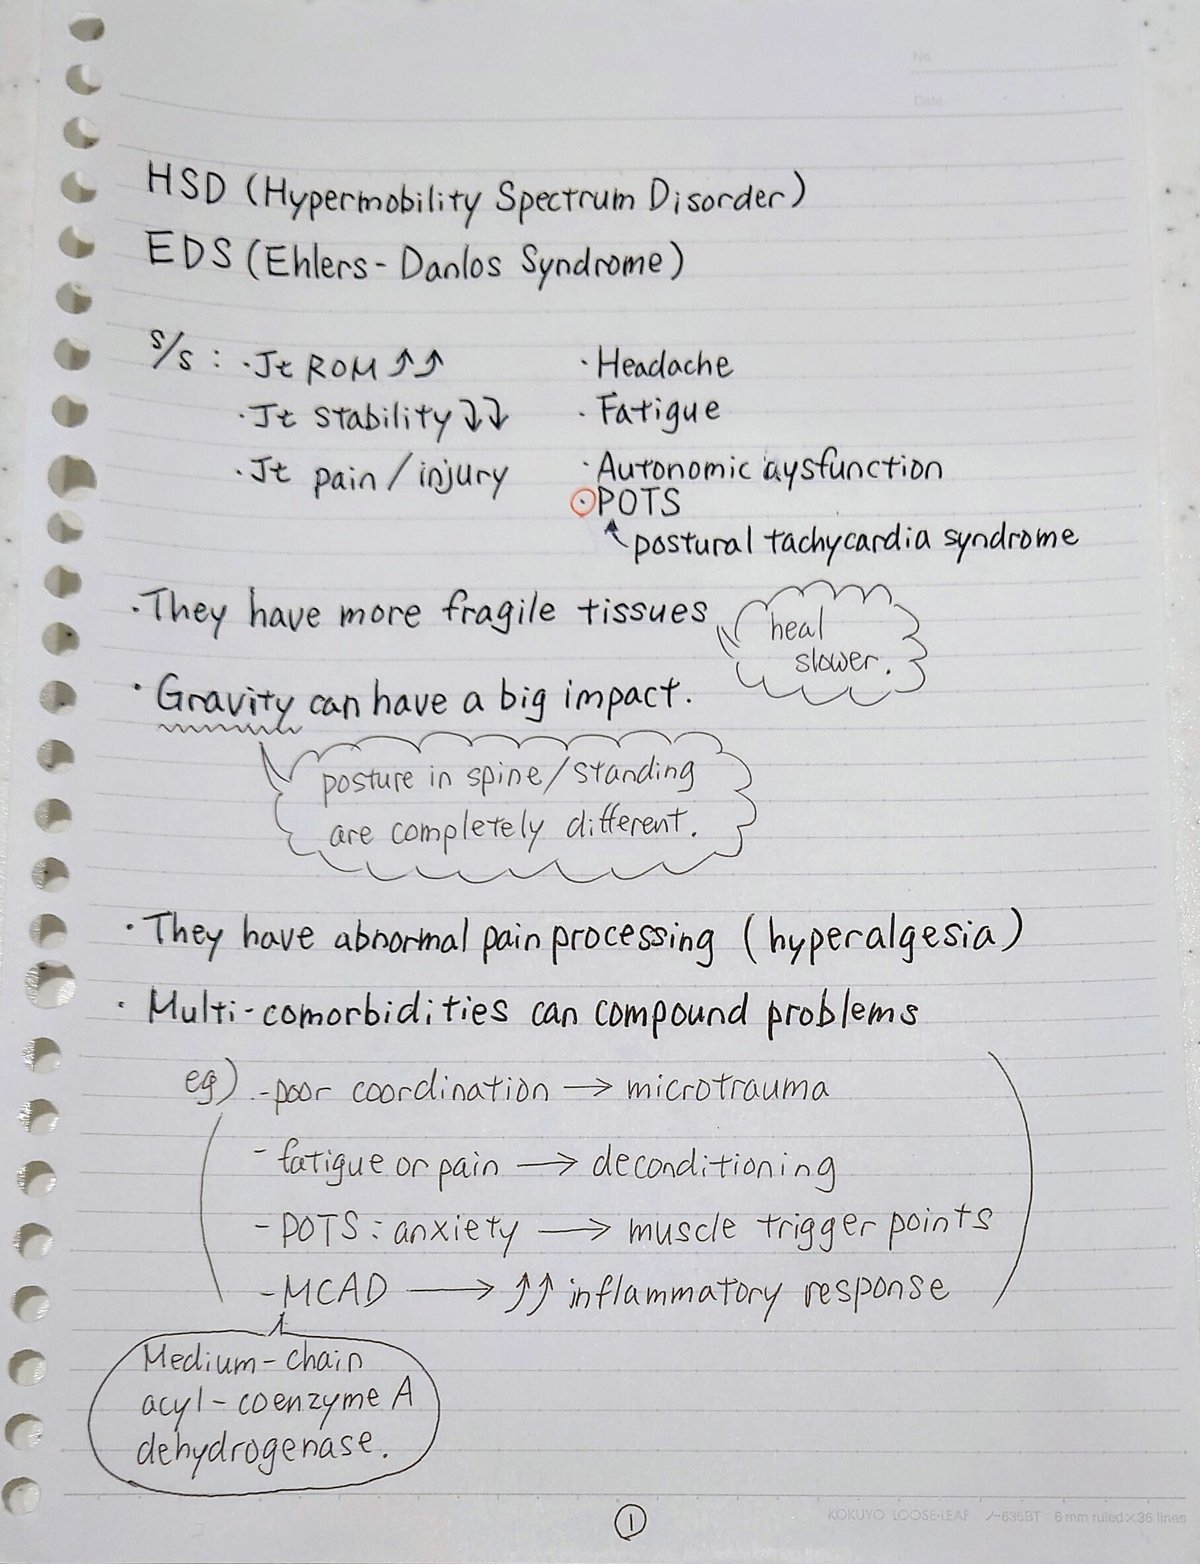 No.
Date
HSD (Hypermobility Spectrum Disorder)
EDS (Ehlers-Danlos Syndrome)
s/s : ・Jt ROM ↑↑
・Jt stability ↓↓
・Jt pain / injury
・Headache
・Fatigue
・Autonomic dysfunction
・POTS
postural tachycardia syndrome
・They have more fragile tissues
heal
slower.
・Gravity can have a big impact.
posture in spine/standing
are completely different.
・They have abnormal pain processing (hyperalgesia)
・Multi-comorbidities can compound problems
eg) - poor coordination → microtrauma
- fatigue or pain → deconditioning
- POTS : anxiety → muscle trigger points
- MCAD → ↑↑ inflammatory response
Medium-chain
acyl-coenzyme A
dehydrogenase.
①
KOKUYO LOOSE-LEAF ノ-836BT 6 mm ruled×36 lines